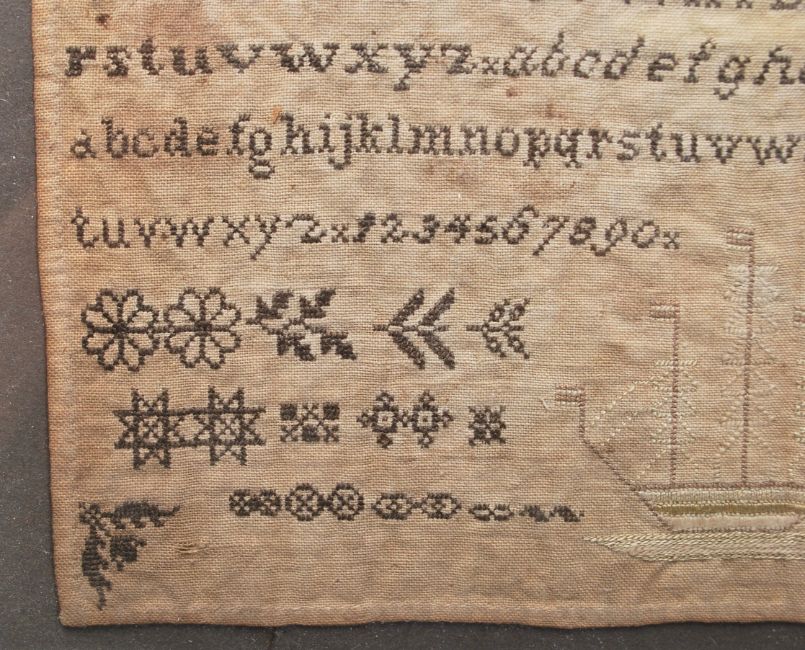 rstuvwxyz×abcdefgh
abcdefghijklmnopqrstuvw
tuvwxyz×1234567890×